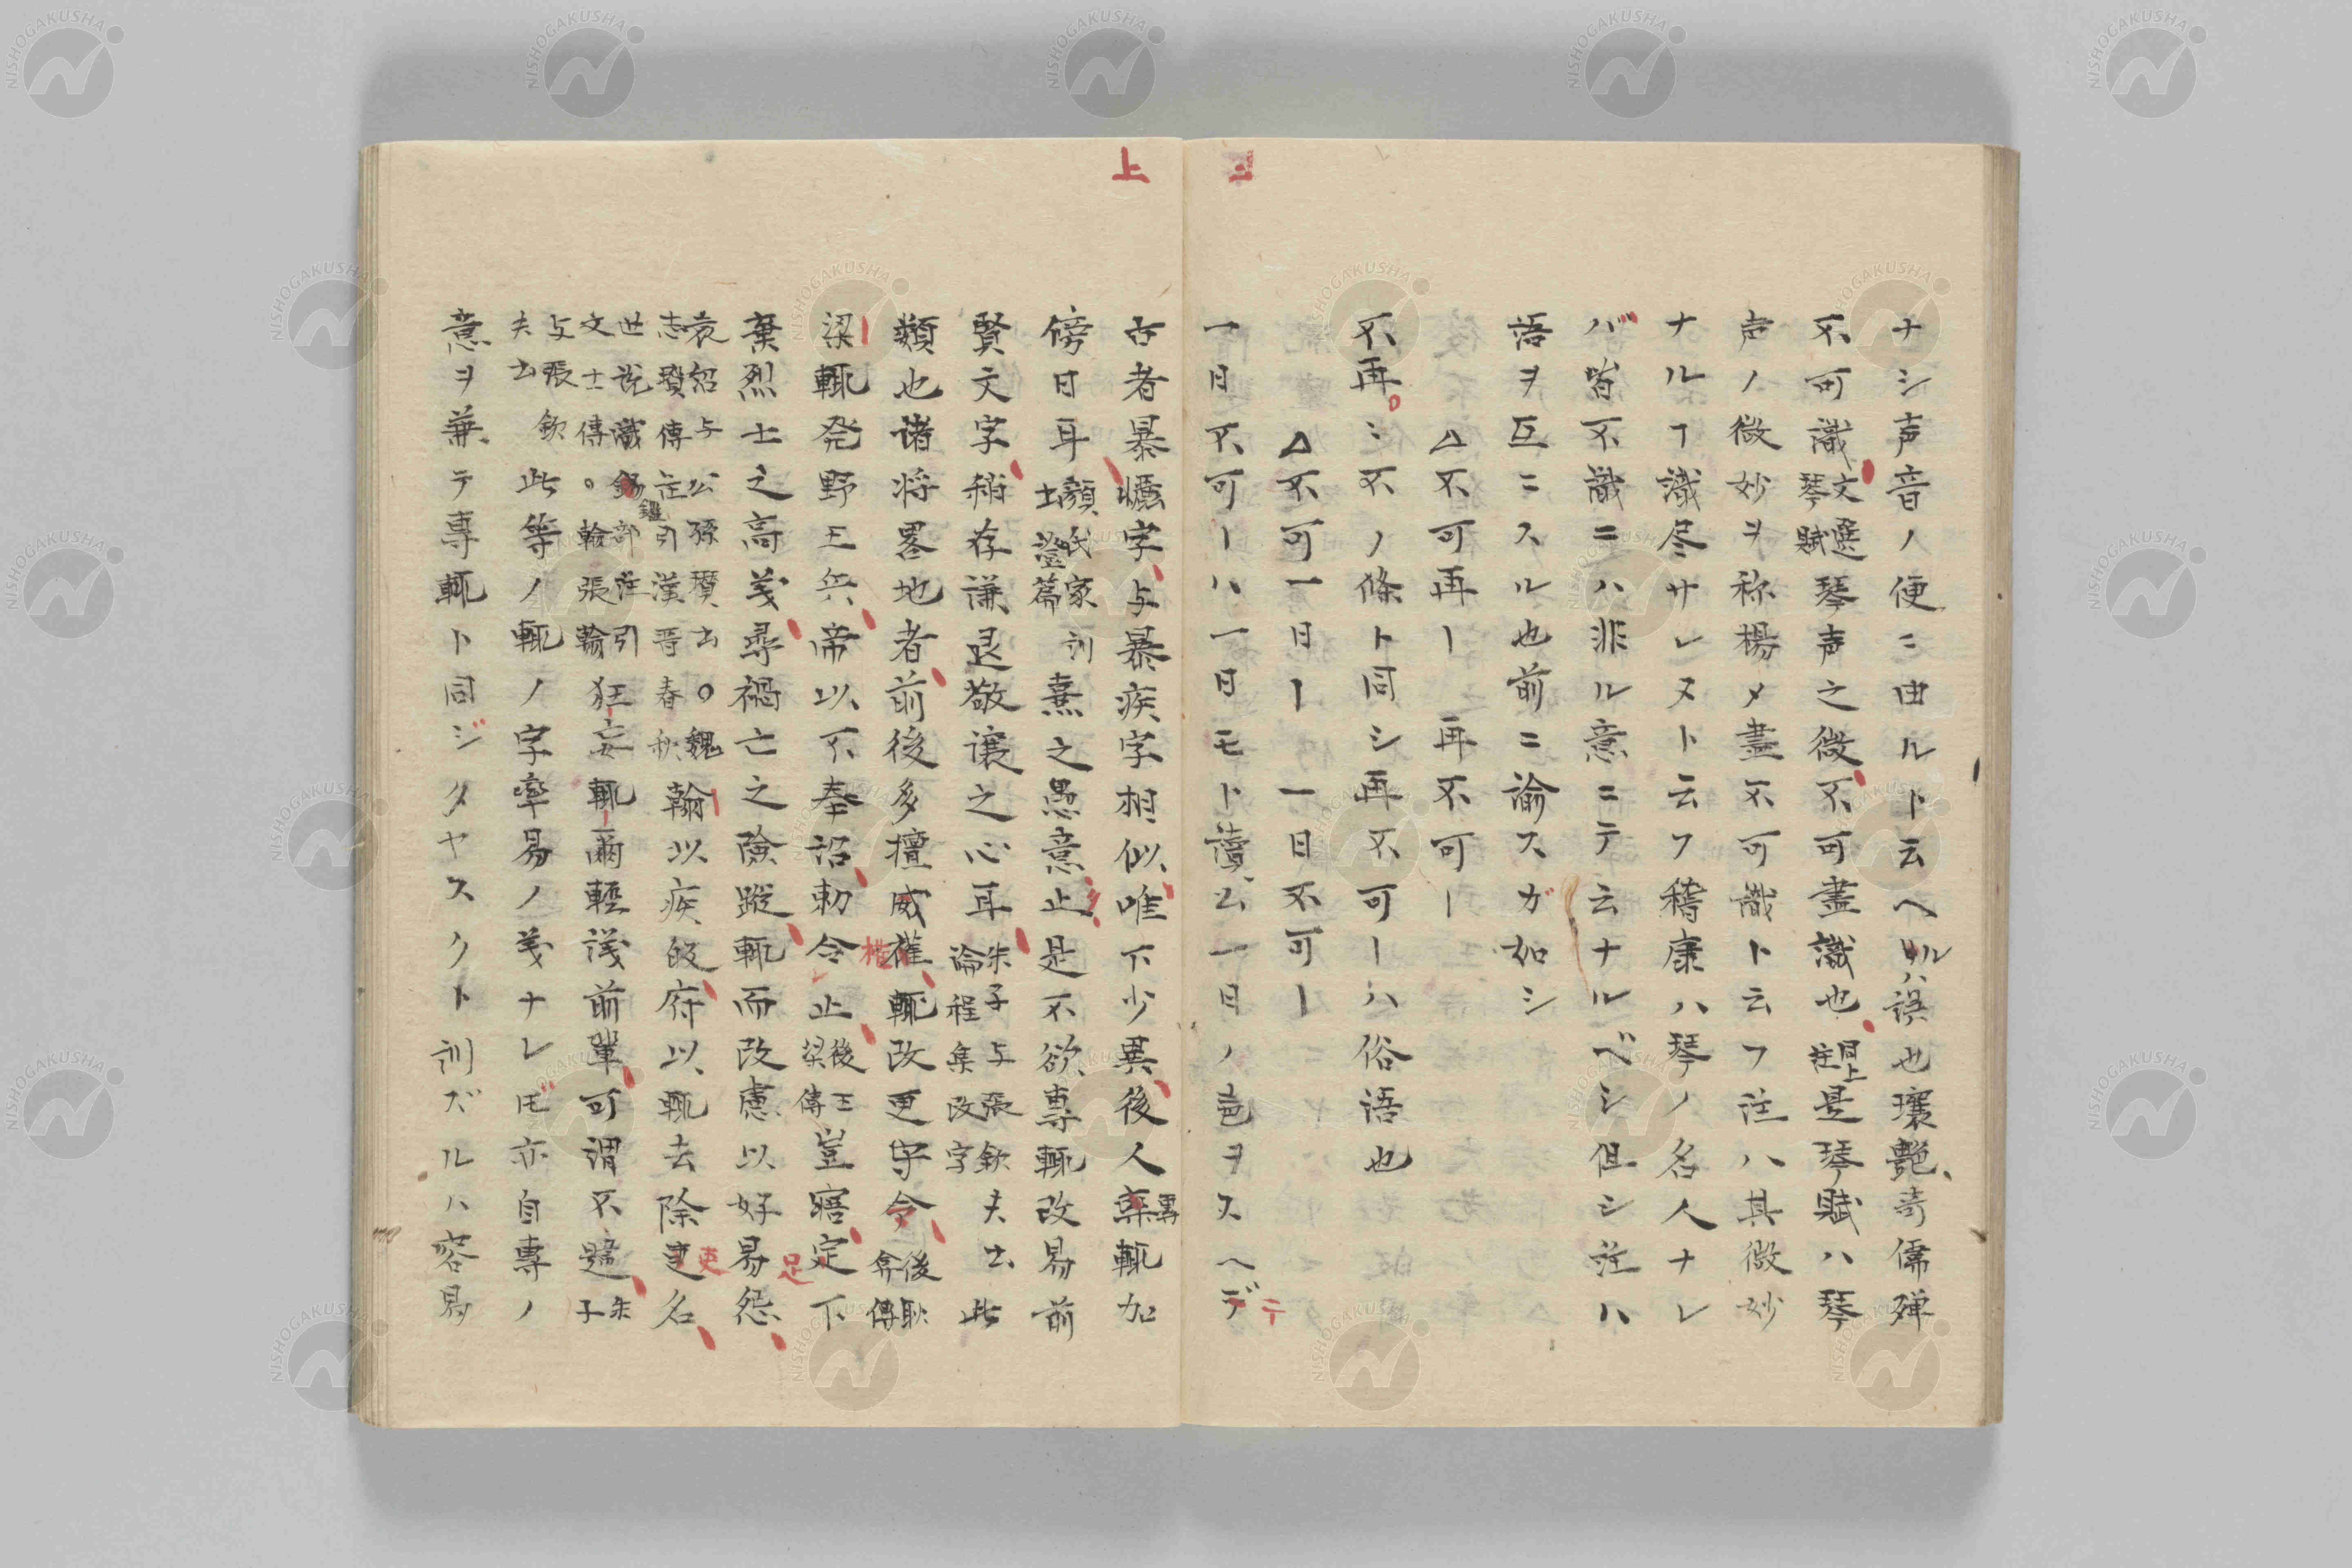 ナシ声音ノ便ニ由ルト云ヘルハ誤也瓌艷奇偉殫
不可識文選琴賦琴声之微不可盡識也同上註是琴賦ハ琴
声ノ微妙ヲ称楊メ盡不可識ト云フ註ハ其微妙
ナルヿ識尽サレヌト云フ嵆康ハ琴ノ名人ナレ
バ皆不識ニハ非ル意ニテ云ナルベシ但シ註ハ
語ヲ互ニスル也前ニ諭スガ如シ
△不可再ー 再不可ー
不再ニ不ノ條ト同シ再不可ーハ俗語也
△不可一日ー 一日不可ー
一日不可ーハ一日モト讀ム一日ノ邑ヲスヘデ
テ
上
古者暴慢字与暴疾字相似唯下少異後人棄輒加
專
傍日耳顔氏家訓書證篇熹之愚意止是不欲專輒改易前
賢文字稍存謙退敬讓之心耳朱子与張欽夫論程集改字夫云此
類也諸将畧地者前後多擅威權輒改更守令後耿弇傳
梁輒発野王兵帝以不奉詔勅令止後王梁傳豈寤定下
棄烈士之高義尋禍亡之險蹤輒而改慮以好易怨
足
袁紹与公孫瓚書○魏志瓚傳註引漢晋春秋翰以疾故府以輒去除吏名
吏
世說識鍳部註引文士傳○翰張翰狂妄輒爾輕議前輩可謂不韙朱子
与張欽夫書此等ノ輒ノ字率易ノ義ナレ𪜈亦自專ノ
意ヲ兼テ專輒ト同ジタヤスクト訓ズルハ容易
NISHOGAKUSHA